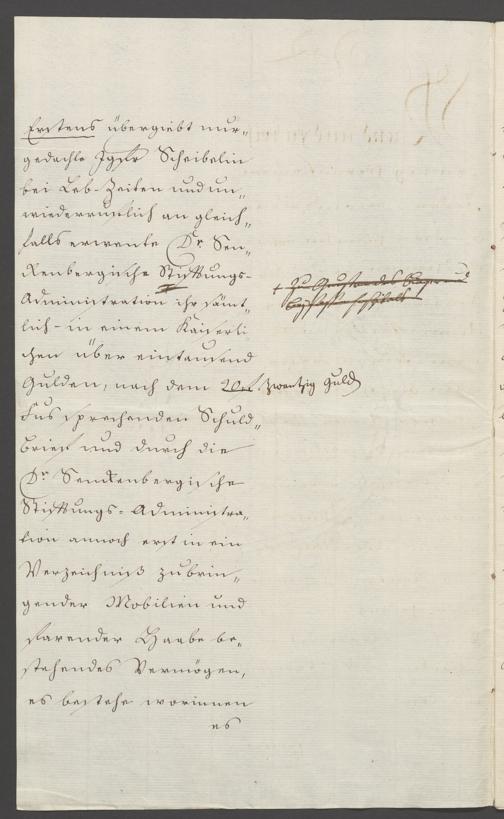 Erstens übergiebt nur-
gedachte Jgfr Scheibelin
bei Leb-Zeiten und un-
wiederruflich an gleich-
falls erwente Dr. Sen-
ckenbergische Stiftungs-
Administration ihr sämt-
lich- in einem Kaiserli
chen über eintausend
Gulden, nach dem 20 f. zwantzig Guld
Fus sprechenden Schuld-
brief und durch die
Dr. Senckenbergische
Stiftungs-Administra-
tion annoch erst in ein
Verzeichniß zubrin-
gender Mobilien und
farender Haabe be-
stehendes Vermögen,
es bestehe worinnen
es